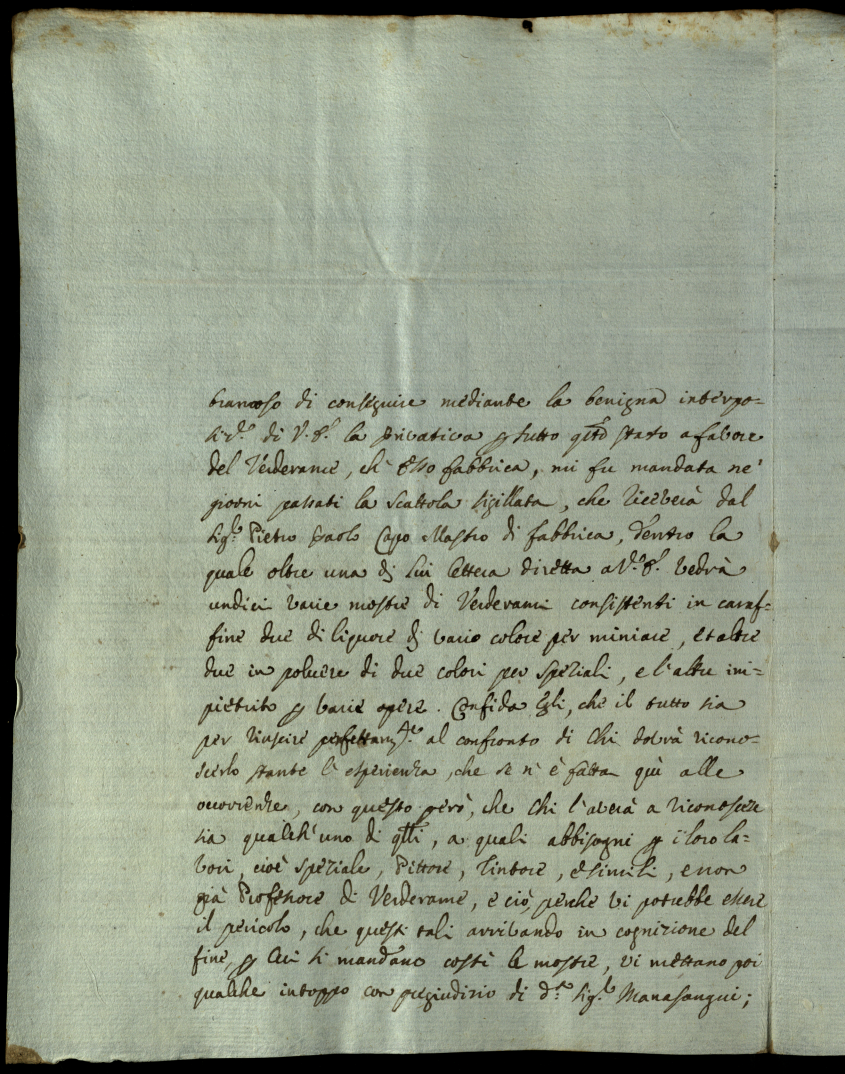 bramoso di conseguire mediante la benigna interpo=
di V. S. la privativa p tutto qsto stato a favore
del Verderame, ch' esso fabbrica, mi fu mandata ne'
giorni passati la scattola sigillata, che riceverà dal
Sigr. Pietro Paolo Capo Mastro di fabbrica, dentro la
quale oltre una di lui lettera diretta a V. S. vedrà
undici varie mostre di Verderami consistenti in caraf=
fine due di liquore di vario colore per miniare, et altre
due in polvere di due colori per speziali, e l'altre im=
pietrito p varie opere. Confida Egli, che il tutto sia
per riuscire perfettamte. al confronto di chi dovrà ricono=
scerlo stante l'esperienza, che se n'è fatta quì alle
occorrenze, con questo però, che chi l'averà a riconoscere
sia qualch'uno di qlli, a quali abbisogni p i loro la=
vori, cioè speziale, Pittore, Tintore, e simili, e non
già Professore di Verderame, e ciò, perché vi potrebbe essere
il pericolo, che questi tali arrivando in cognizione del
fine, p cui si mandano costì le mostre, vi mettano poi
qualche intoppo con pregiudizio di do. Sigr. Manasangui;